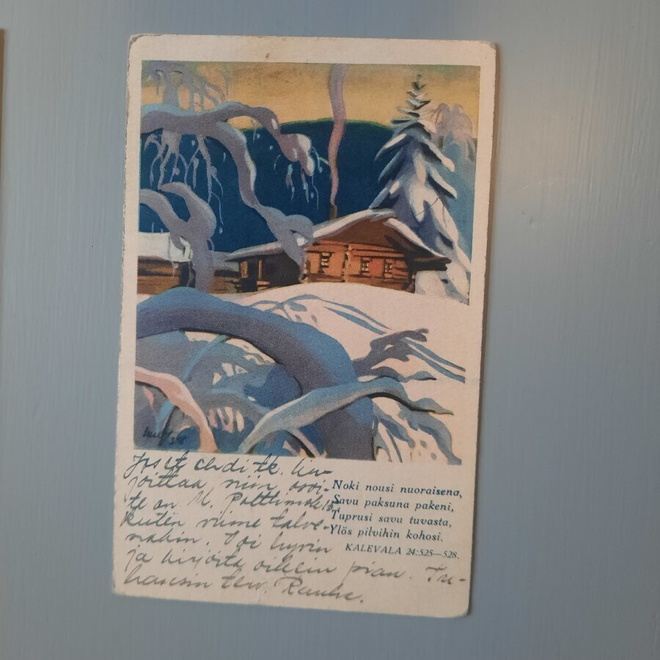 Noki nousi nuoraisena,
Savu paksuna pakeni,
Tuprusi savu tuvasta,
Ylös pilvihin kohosi.
KALEVALA 24:525—528.
Jos et ehdi tk. kir-
joittaa, niin osoi-
te on U. Polttimok
kuten viime talve-
nakin. Voi hyvin
ja kirjoita oikein pian. Tu-
hansin terv. Rauha.